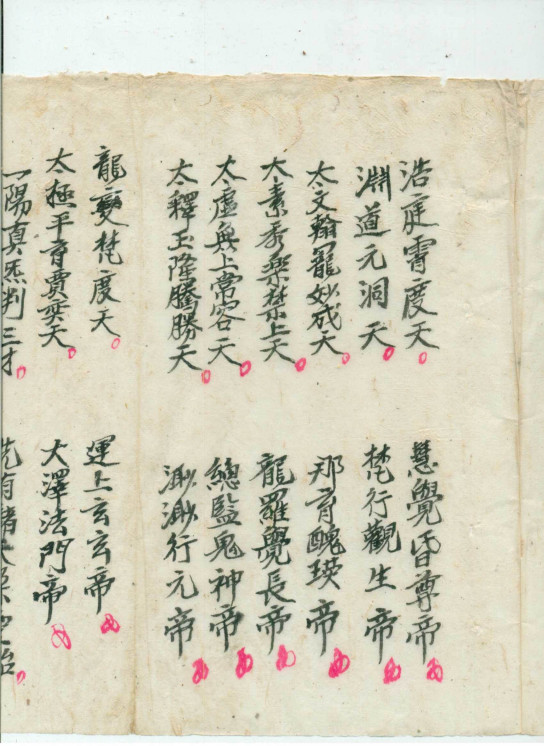 浩庭霄度天
慧覺昏尊帝
淵道元洞天
梵行觀生帝
太文翰寵妙成天
那育醜瑛帝
太素秀樂禁上天
龍羅覺長帝
太虛無上常容天
總監鬼神帝
太釋玉隆騰勝天
渺渺行元帝
龍變梵度天
運上玄玄帝
太極平育賈奕天
大澤法門帝
一陽真炁判三才
先有諸天